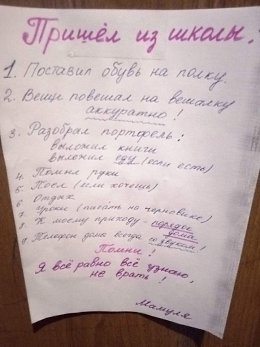 Пришёл из школы:
1. Поставил обувь на полку.
2. Вещи повешал на вешалку
аккуратно!
3. Разобрал портфель:
выложил книги
выложил еду (если есть)
4. Помыл руки
5. Поел (если хочешь)
6. Отдых
7. Уроки (писать на черновике)
8. К моему приходу порядок
дома
9. Телефон дома всегда со звуком,
Помни!
Я всё равно всё узнаю,
не врать!
Мамуля